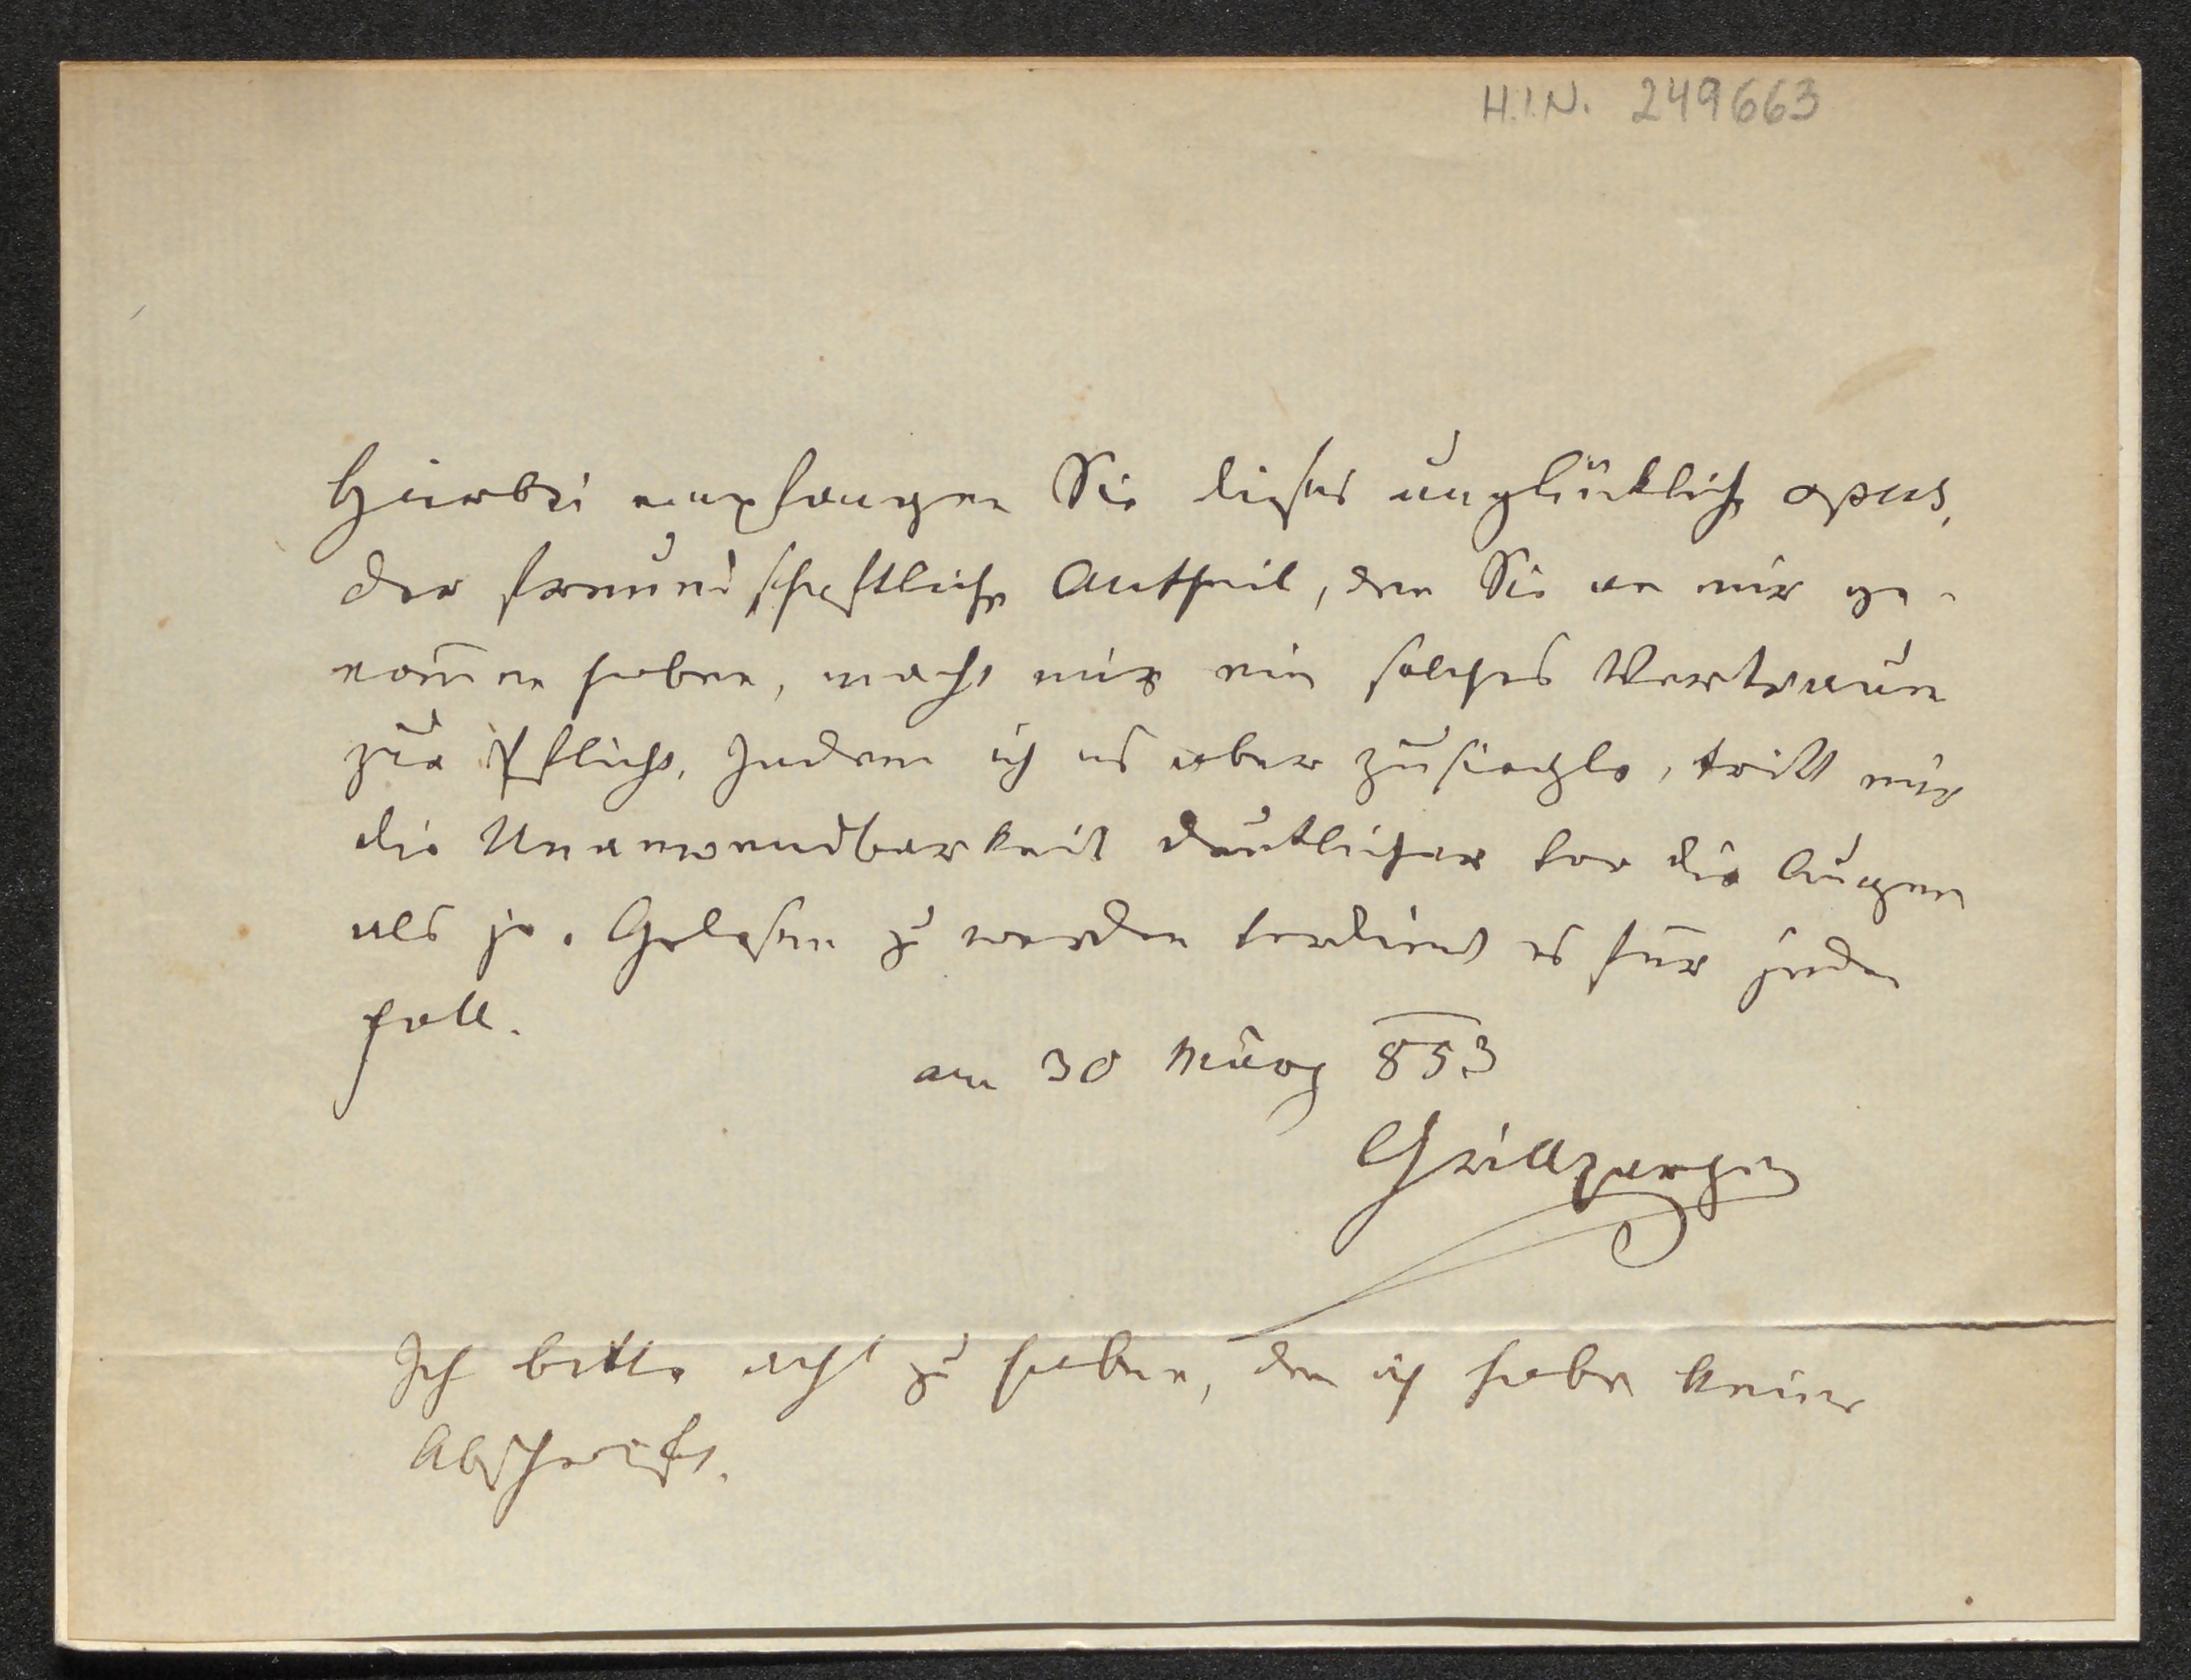 H.I.N. 249663
Hierbei empfangen Sie dieses unglückliche opus,
der freundschaftliche Antheil, den Sie an mir ge-
nom̅en haben, macht mir ein solches Vertrauen
zur Pflicht. Indem ich es aber zusiegle, tritt mir
die Unanwendbarkeit deutlicher vor die Augen
als je. Gelesen zu werden verdient es für jeden
Fall.
am 30 März 853
Grillparzer
Ich bitte acht zu haben, den ich habe keine
Abschrift.